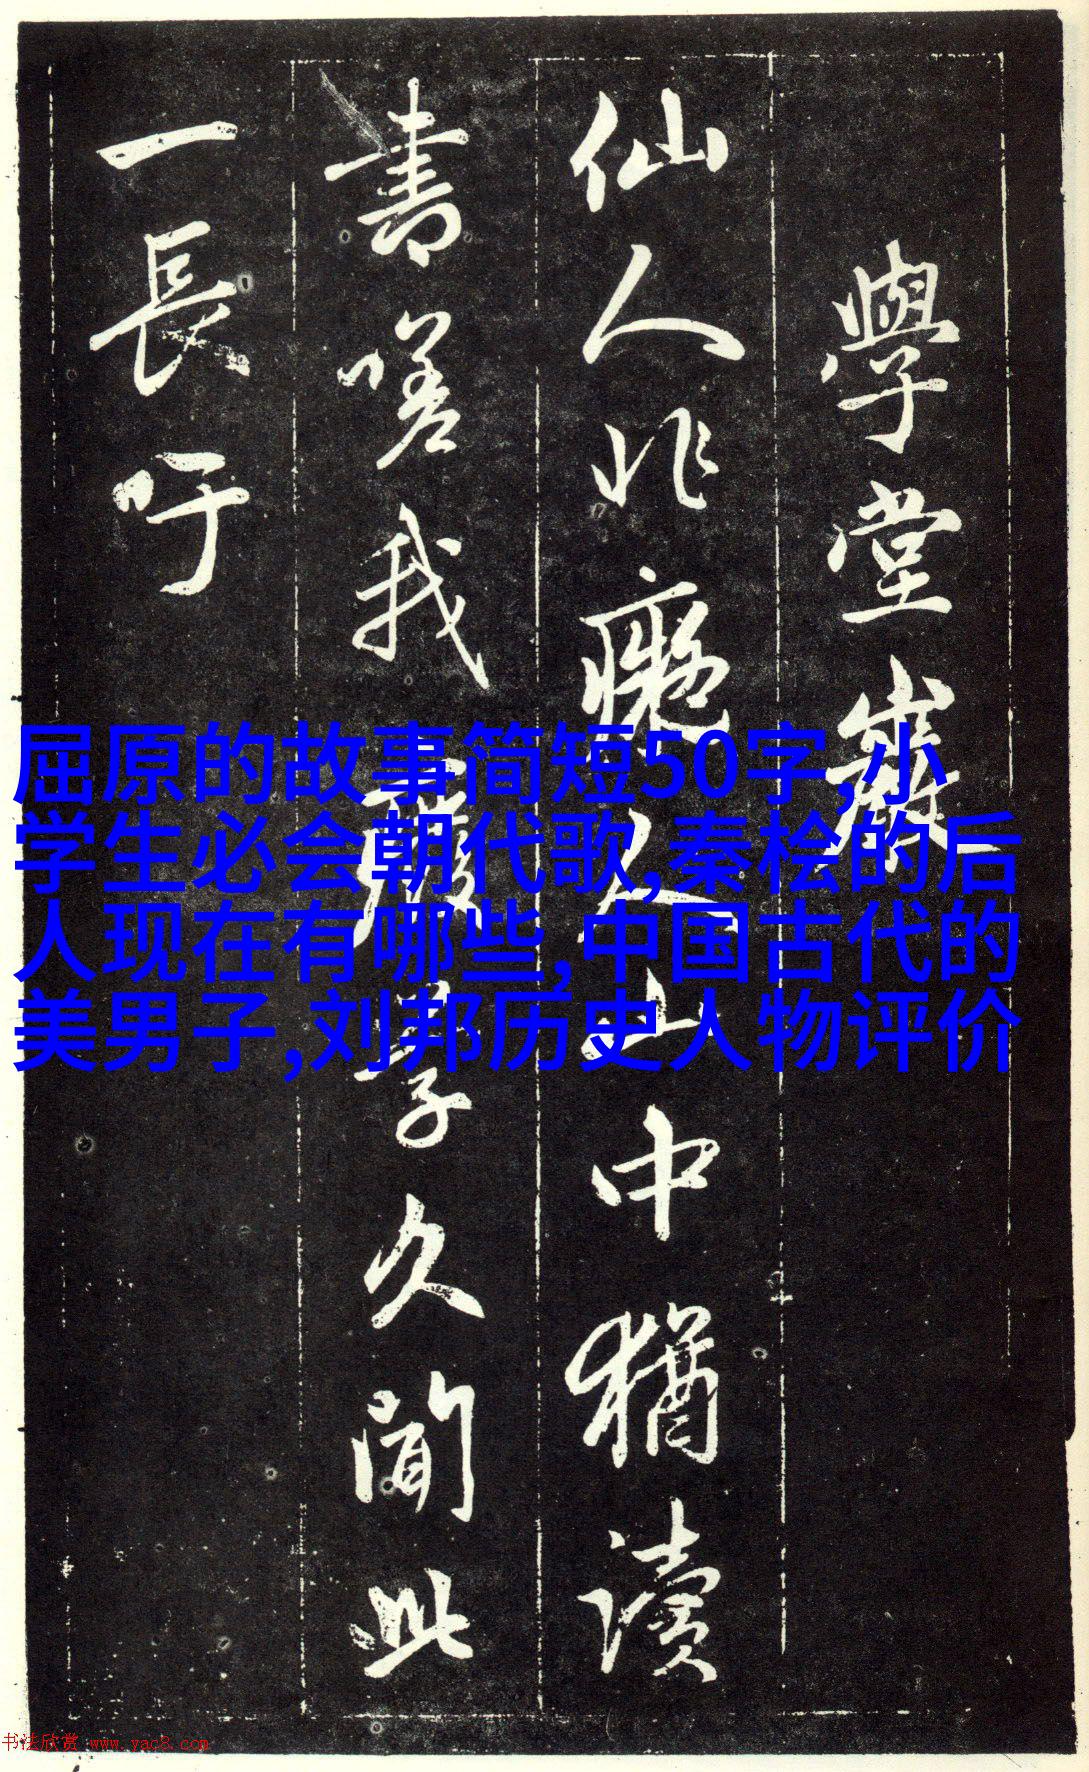 學堂巖
仙人非癡人山中猶讀
書嗟我廢學久聞此
一長吁
屈原的故事简短50字,小
学生必会朝代歌,秦桧的后
人现在有哪些,中国古代的
美男子,刘邦历史人物评价
书法欣赏 www.yac8.com